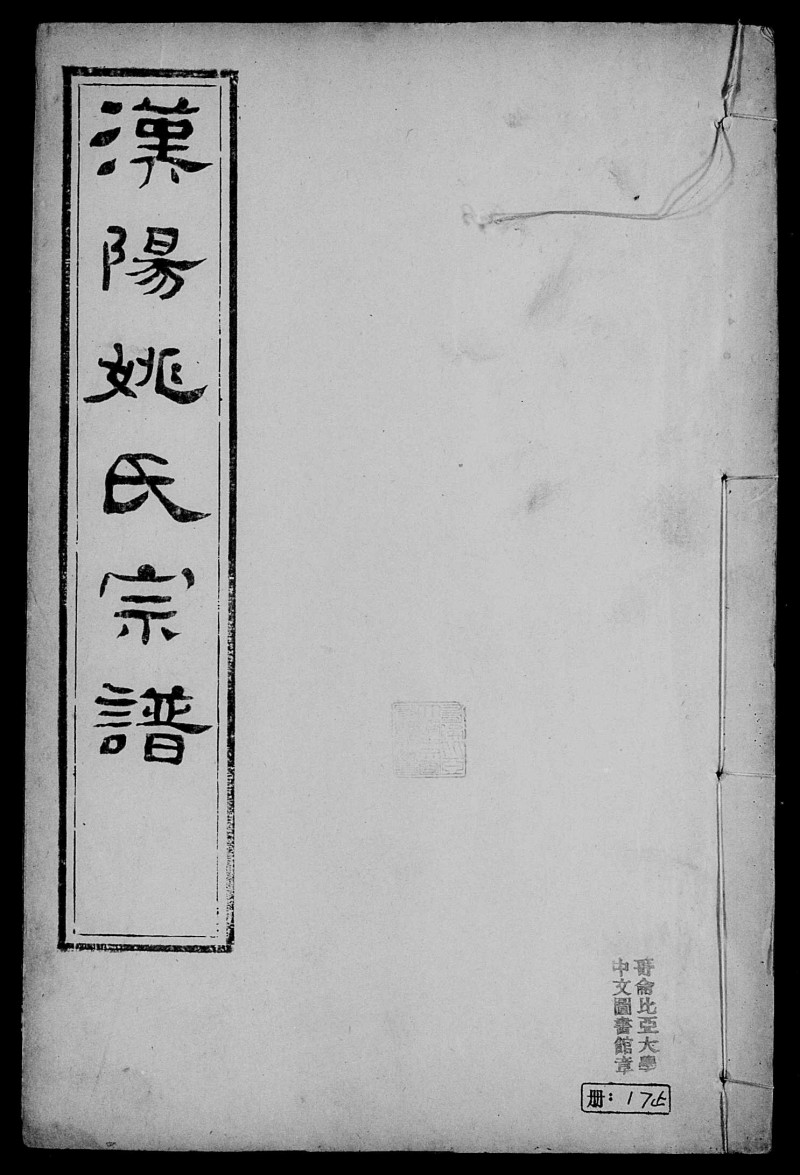 漢陽姚氏宗譜
哥倫比亞大學
中文圖書館章
册:17